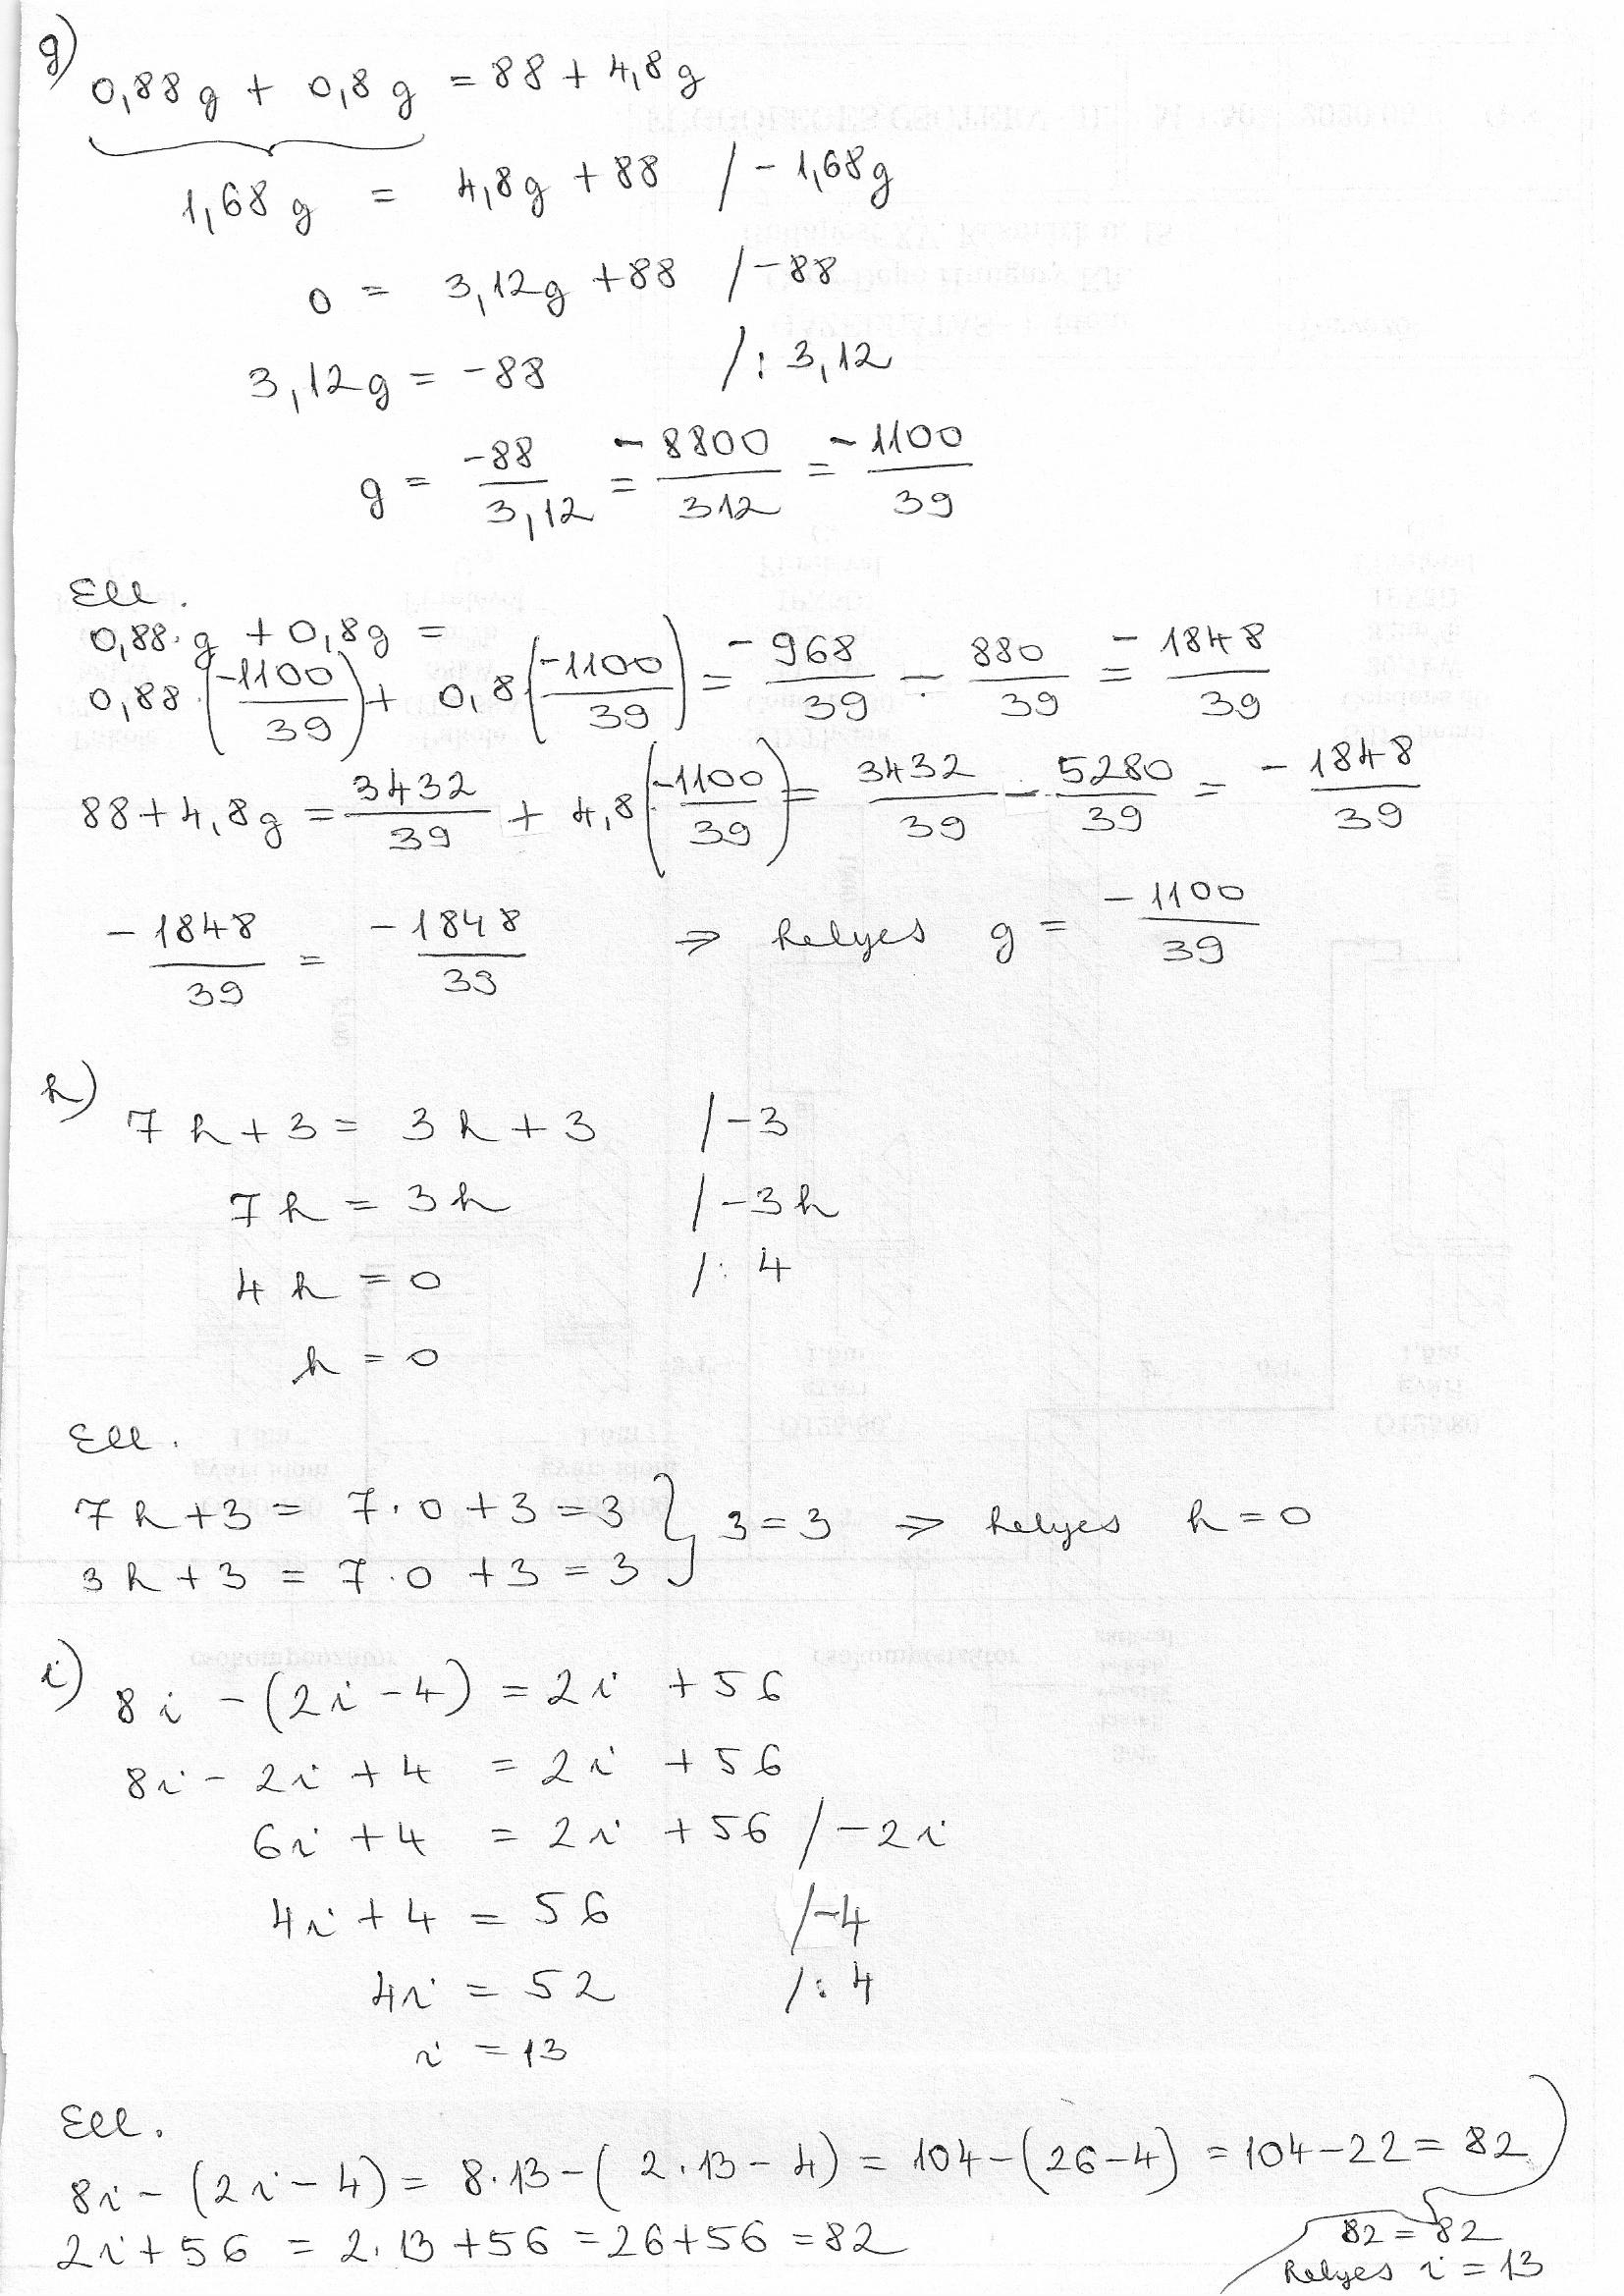 g)
0,88g + 0,8g = 88 + 4,8g
1,68g = 4,8g + 88 / - 1,68g
0 = 3,12g + 88 / - 88
3,12g = -88 / : 3,12
g = -88/3,12 = -8800/312 = -1100/39
Ell.
0,88·g + 0,8g =
0,88·(-1100/39) + 0,8·(-1100/39) = -968/39 - 880/39 = -1848/39
88 + 4,8g = 3432/39 + 4,8(-1100/39) = 3432/39 - 5280/39 = -1848/39
-1848/39 = -1848/39 ⇒ helyes g = -1100/39
h)
7h + 3 = 3h + 3 / -3
7h = 3h / -3h
4h = 0 / : 4
h = 0
Ell.
7h + 3 = 7·0 + 3 = 3 } 3 = 3 ⇒ helyes h = 0
3h + 3 = 7·0 + 3 = 3
i)
8i - (2i - 4) = 2i + 56
8i - 2i + 4 = 2i + 56
6i + 4 = 2i + 56 / -2i
4i + 4 = 56 / -4
4i = 52 / : 4
i = 13
Ell.
8i - (2i - 4) = 8·13 - (2·13 - 4) = 104 - (26 - 4) = 104 - 22 = 82
2i + 56 = 2·13 + 56 = 26 + 56 = 82
82 = 82
helyes i = 13